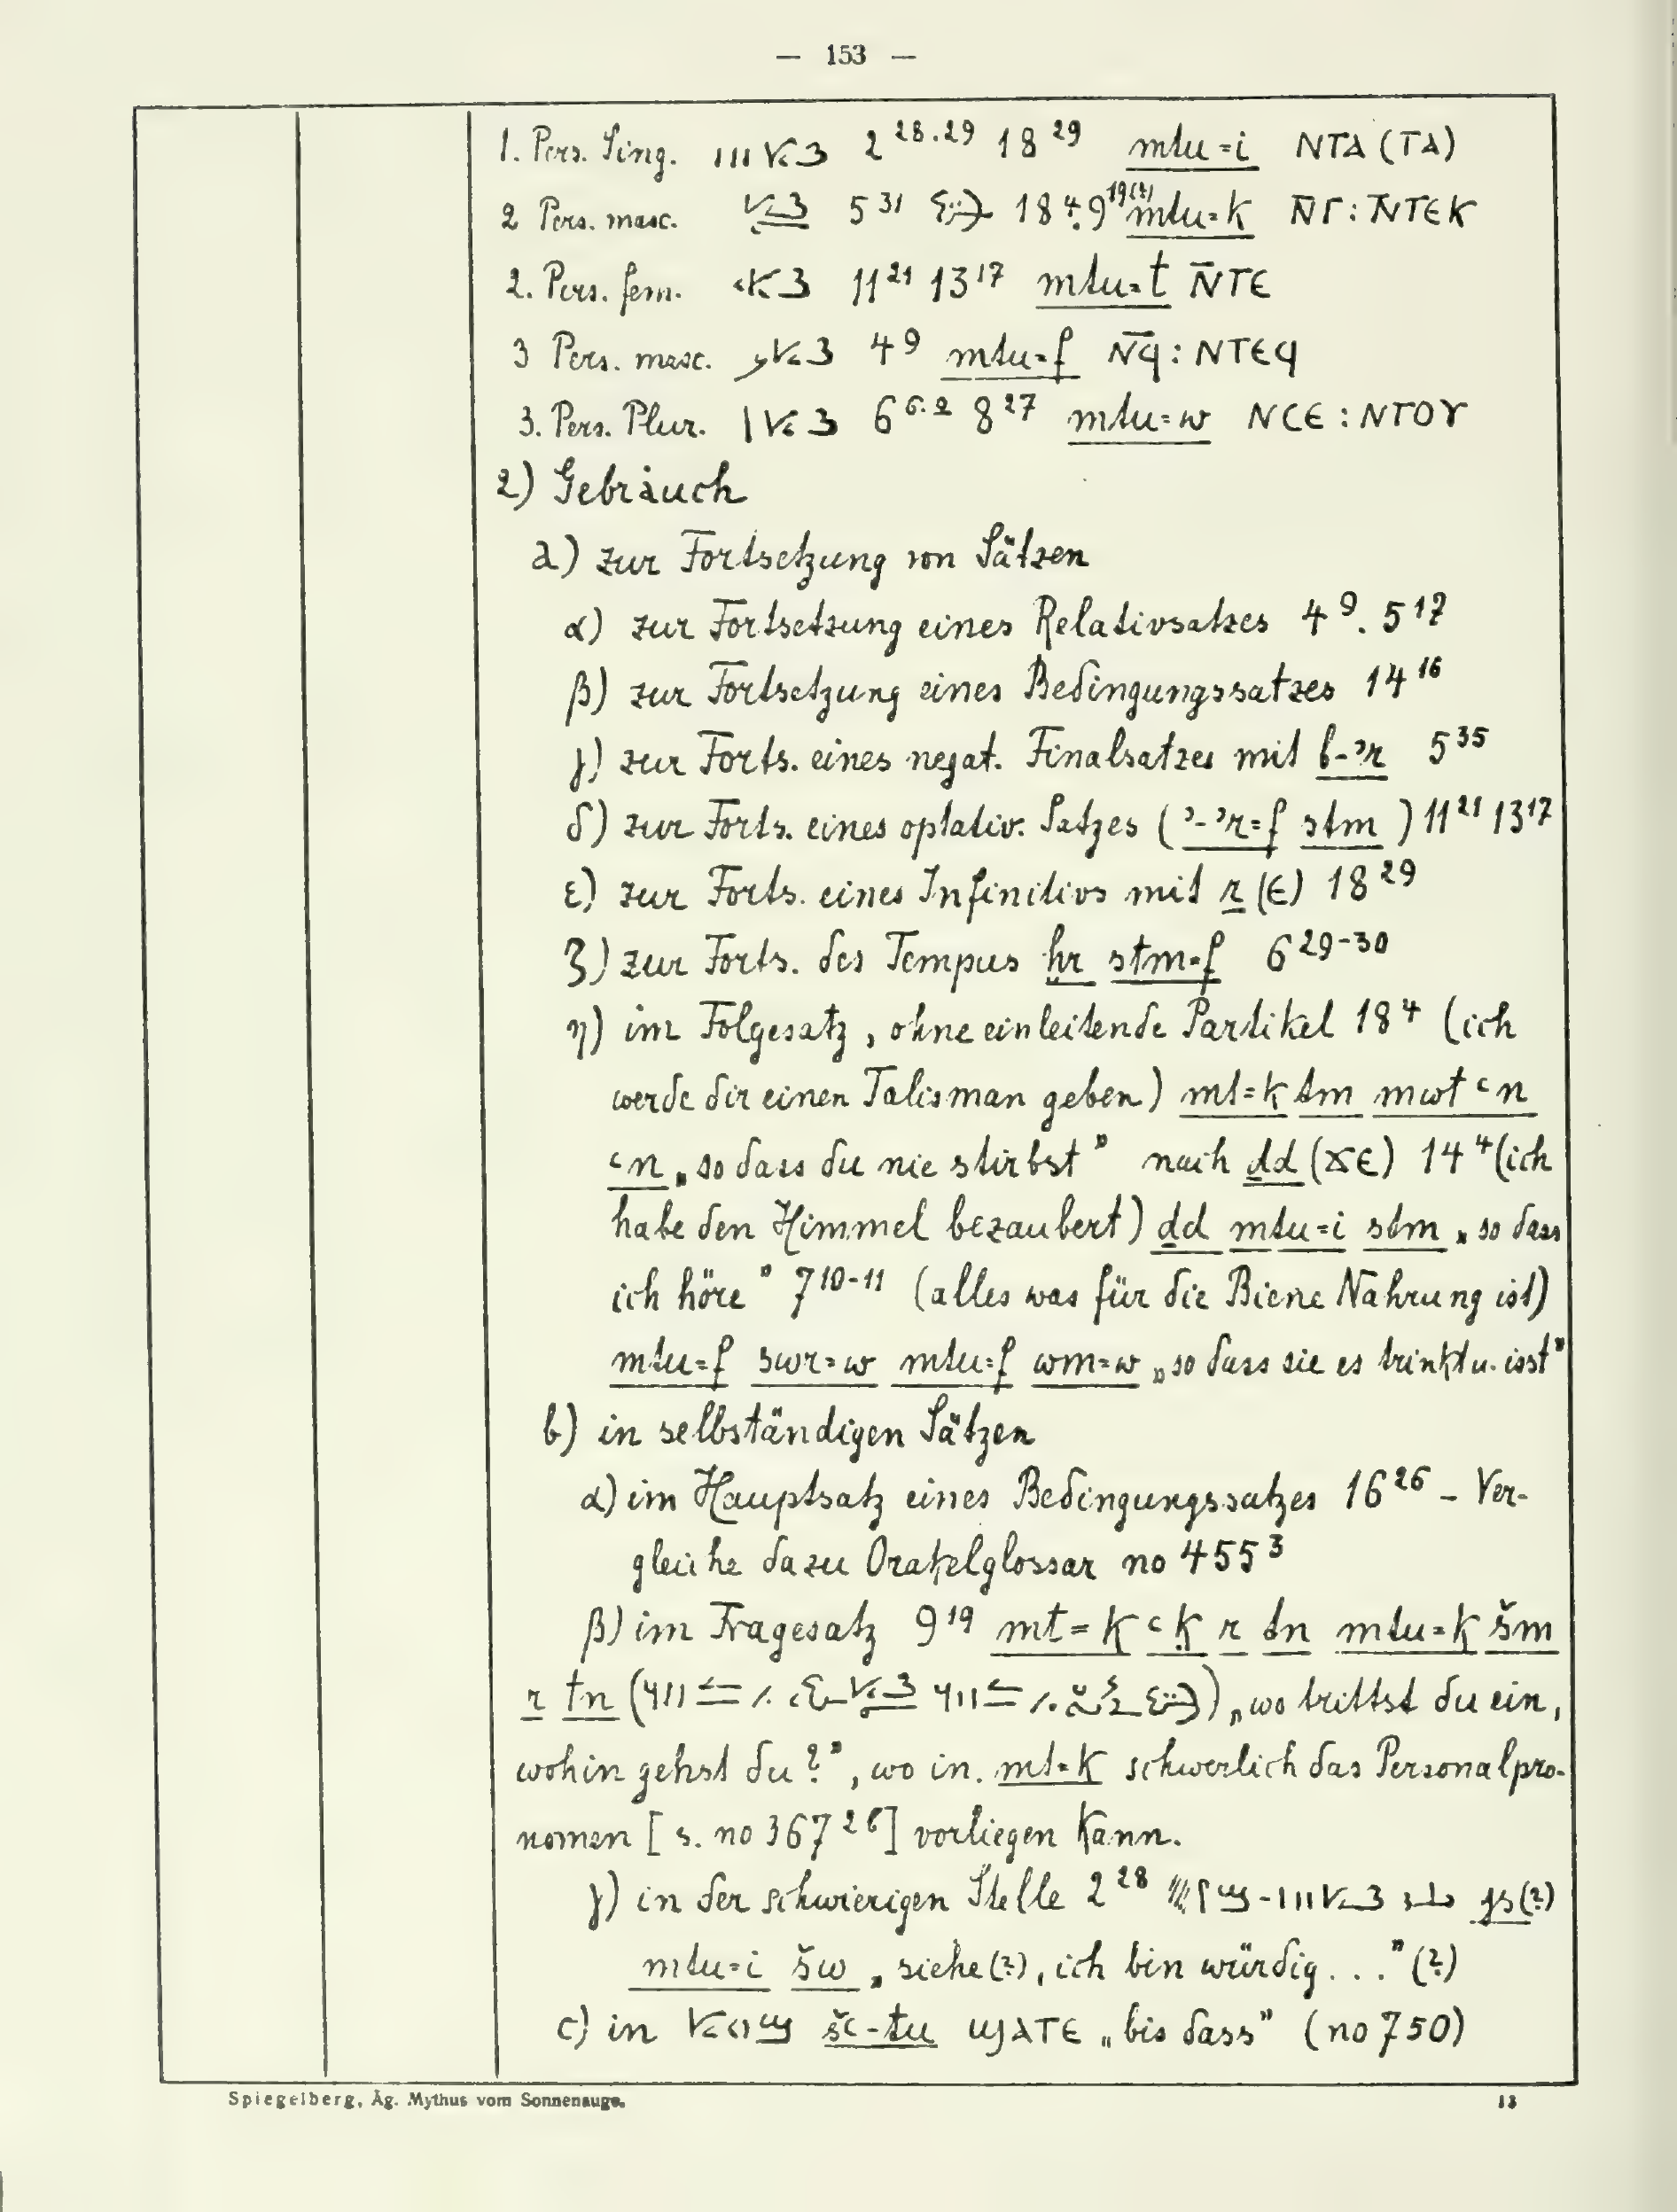 — 153 —
1. Pers. Sing. 2 28.29 18 29 mtu=i ⲚⲦⲀ (ⲦⲀ)
2 Pers. masc. 5 31 18 4.9 19(?) mtu=k Ⲛ̄Ⲅ : Ⲛ̄ⲦⲈⲔ
2. Pers. fem. 11 21 13 17 mtu=t Ⲛ̄ⲦⲈ
3 Pers. masc. 4 9 mtu=f Ⲛ̄ϥ : ⲚⲦⲈϥ
3. Pers. Plur. 6 6.2 8 27 mtu=w ⲚⲤⲈ : ⲚⲦⲞⲨ
2) Gebrauch
a) zur Fortsetzung von Sätzen
α) zur Fortsetzung eines Relativsatzes 4 9. 5 17
β) zur Fortsetzung eines Bedingungssatzes 14 16
γ) zur Forts. eines negat. Finalsatzes mit b-ʾr 5 35
δ) zur Forts. eines optativ. Satzes (ʾ-ʾr=f stm) 11 21 13 17
ε) zur Forts. eines Infinitivs mit r (Ⲉ) 18 29
ζ) zur Forts. des Tempus ḫr stm=f 6 29-30
η) im Folgesatz, ohne einleitende Partikel 18 4 (ich
werde dir einen Talisman geben) mt=k tm mwt ꜥn
ꜥn „so dass du nie stirbst" nach ḏd (ϪⲈ) 14 4 (ich
habe den Himmel bezaubert) ḏd mtu=i stm „so dass
ich höre" 7 10-11 (alles was für die Biene Nahrung ist)
mtu=f swr=w mtu=f wm=w „so dass sie es trinkt u. isst"
b) in selbständigen Sätzen
α) im Hauptsatz eines Bedingungssatzes 16 26 - Ver-
gleiche dazu Orakelglossar no 455 3
β) im Fragesatz 9 19 mt=k ꜥḳ r tn mtu=k šm
r tn ( ) „wo trittst du ein,
wohin gehst du?", wo in mt=k schwerlich das Personalpro-
nomen [s. no 367 2b] vorliegen kann.
γ) in der schwierigen Stelle 2 28 js(?)
mtu=i šw „siehe(?), ich bin würdig..." (?)
c) in šꜥ-tu ϢⲀⲦⲈ „bis dass" (no 750)
Spiegelberg, Äg. Mythus vom Sonnenauge. 13